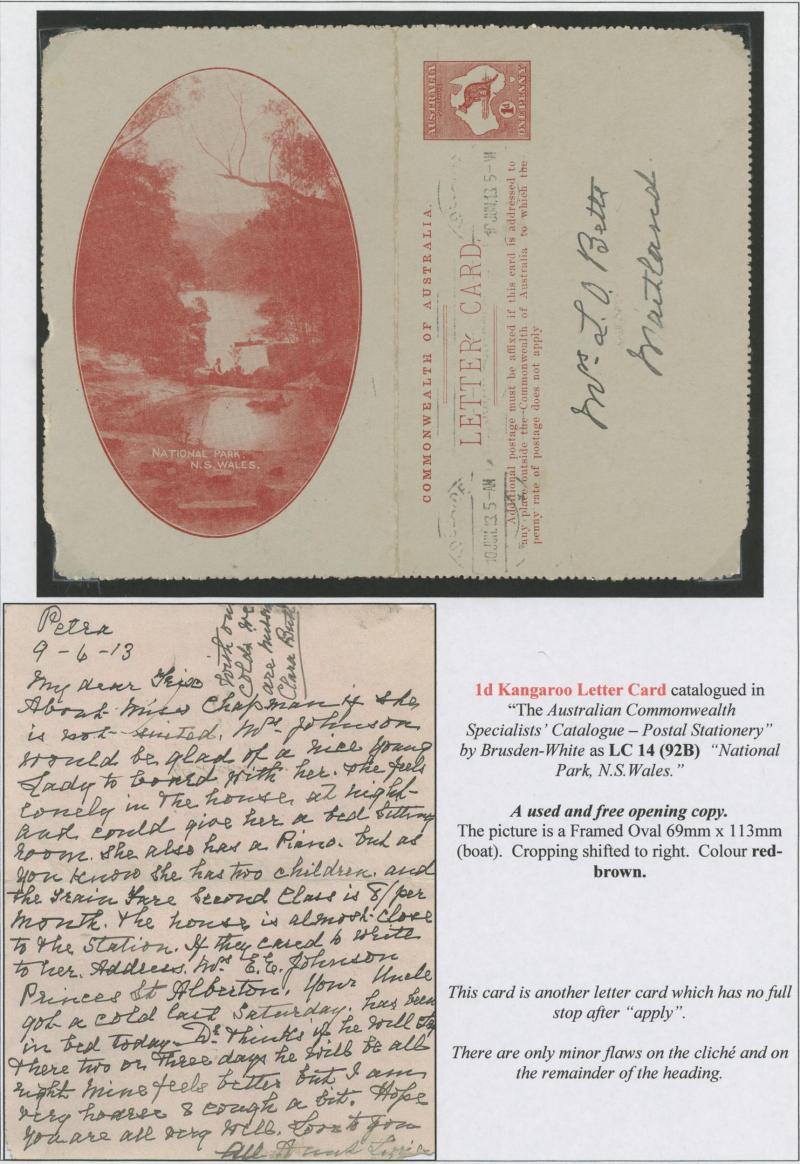 NATIONAL PARK
N.S. WALES.
AUSTRALIA
POSTAGE
1D
ONE PENNY
COMMONWEALTH OF AUSTRALIA.
LETTER CARD
Additional postage must be affixed if this card is addressed to
any place outside the Commonwealth of Australia to which the
penny rate of postage does not apply
ADELAIDE
10 JUN. 13 5-AM
10 JUN. 13 5-AM
Mrs L. O. Betts
Maitland.
Petra
9-6-13
My dear
About Miss Chapman if she
is not suited. Mrs. Johnson
would be glad of a nice young
Lady to board with her. she feels
lonely in the house at night
and could give her a bed sitting
room. she also has a Piano. but as
you know she has two children. and
the train Fare Second Class is 8/ per
month. the house is almost close
to the Station. If they cared to write
to her. Address. Mrs. E. E. Johnson
Princes St Alberton. Your Uncle
got a cold last Saturday. has been
in bed today. Dr. thinks if he will stay
there two or three days he will be all
right mine feels better but I am
very hoarse & cough a bit. Hope
you are all very well. Love to you
all Aunt Lizzie
with our
colds we
are missing
Clara Butt
1d Kangaroo Letter Card catalogued in
“The Australian Commonwealth
Specialists’ Catalogue – Postal Stationery”
by Brusden-White as LC 14 (92B) “National
Park, N.S.Wales.”
A used and free opening copy.
The picture is a Framed Oval 69mm x 113mm
(boat). Cropping shifted to right. Colour red-
brown.
This card is another letter card which has no full
stop after “apply”.
There are only minor flaws on the cliché and on
the remainder of the heading.